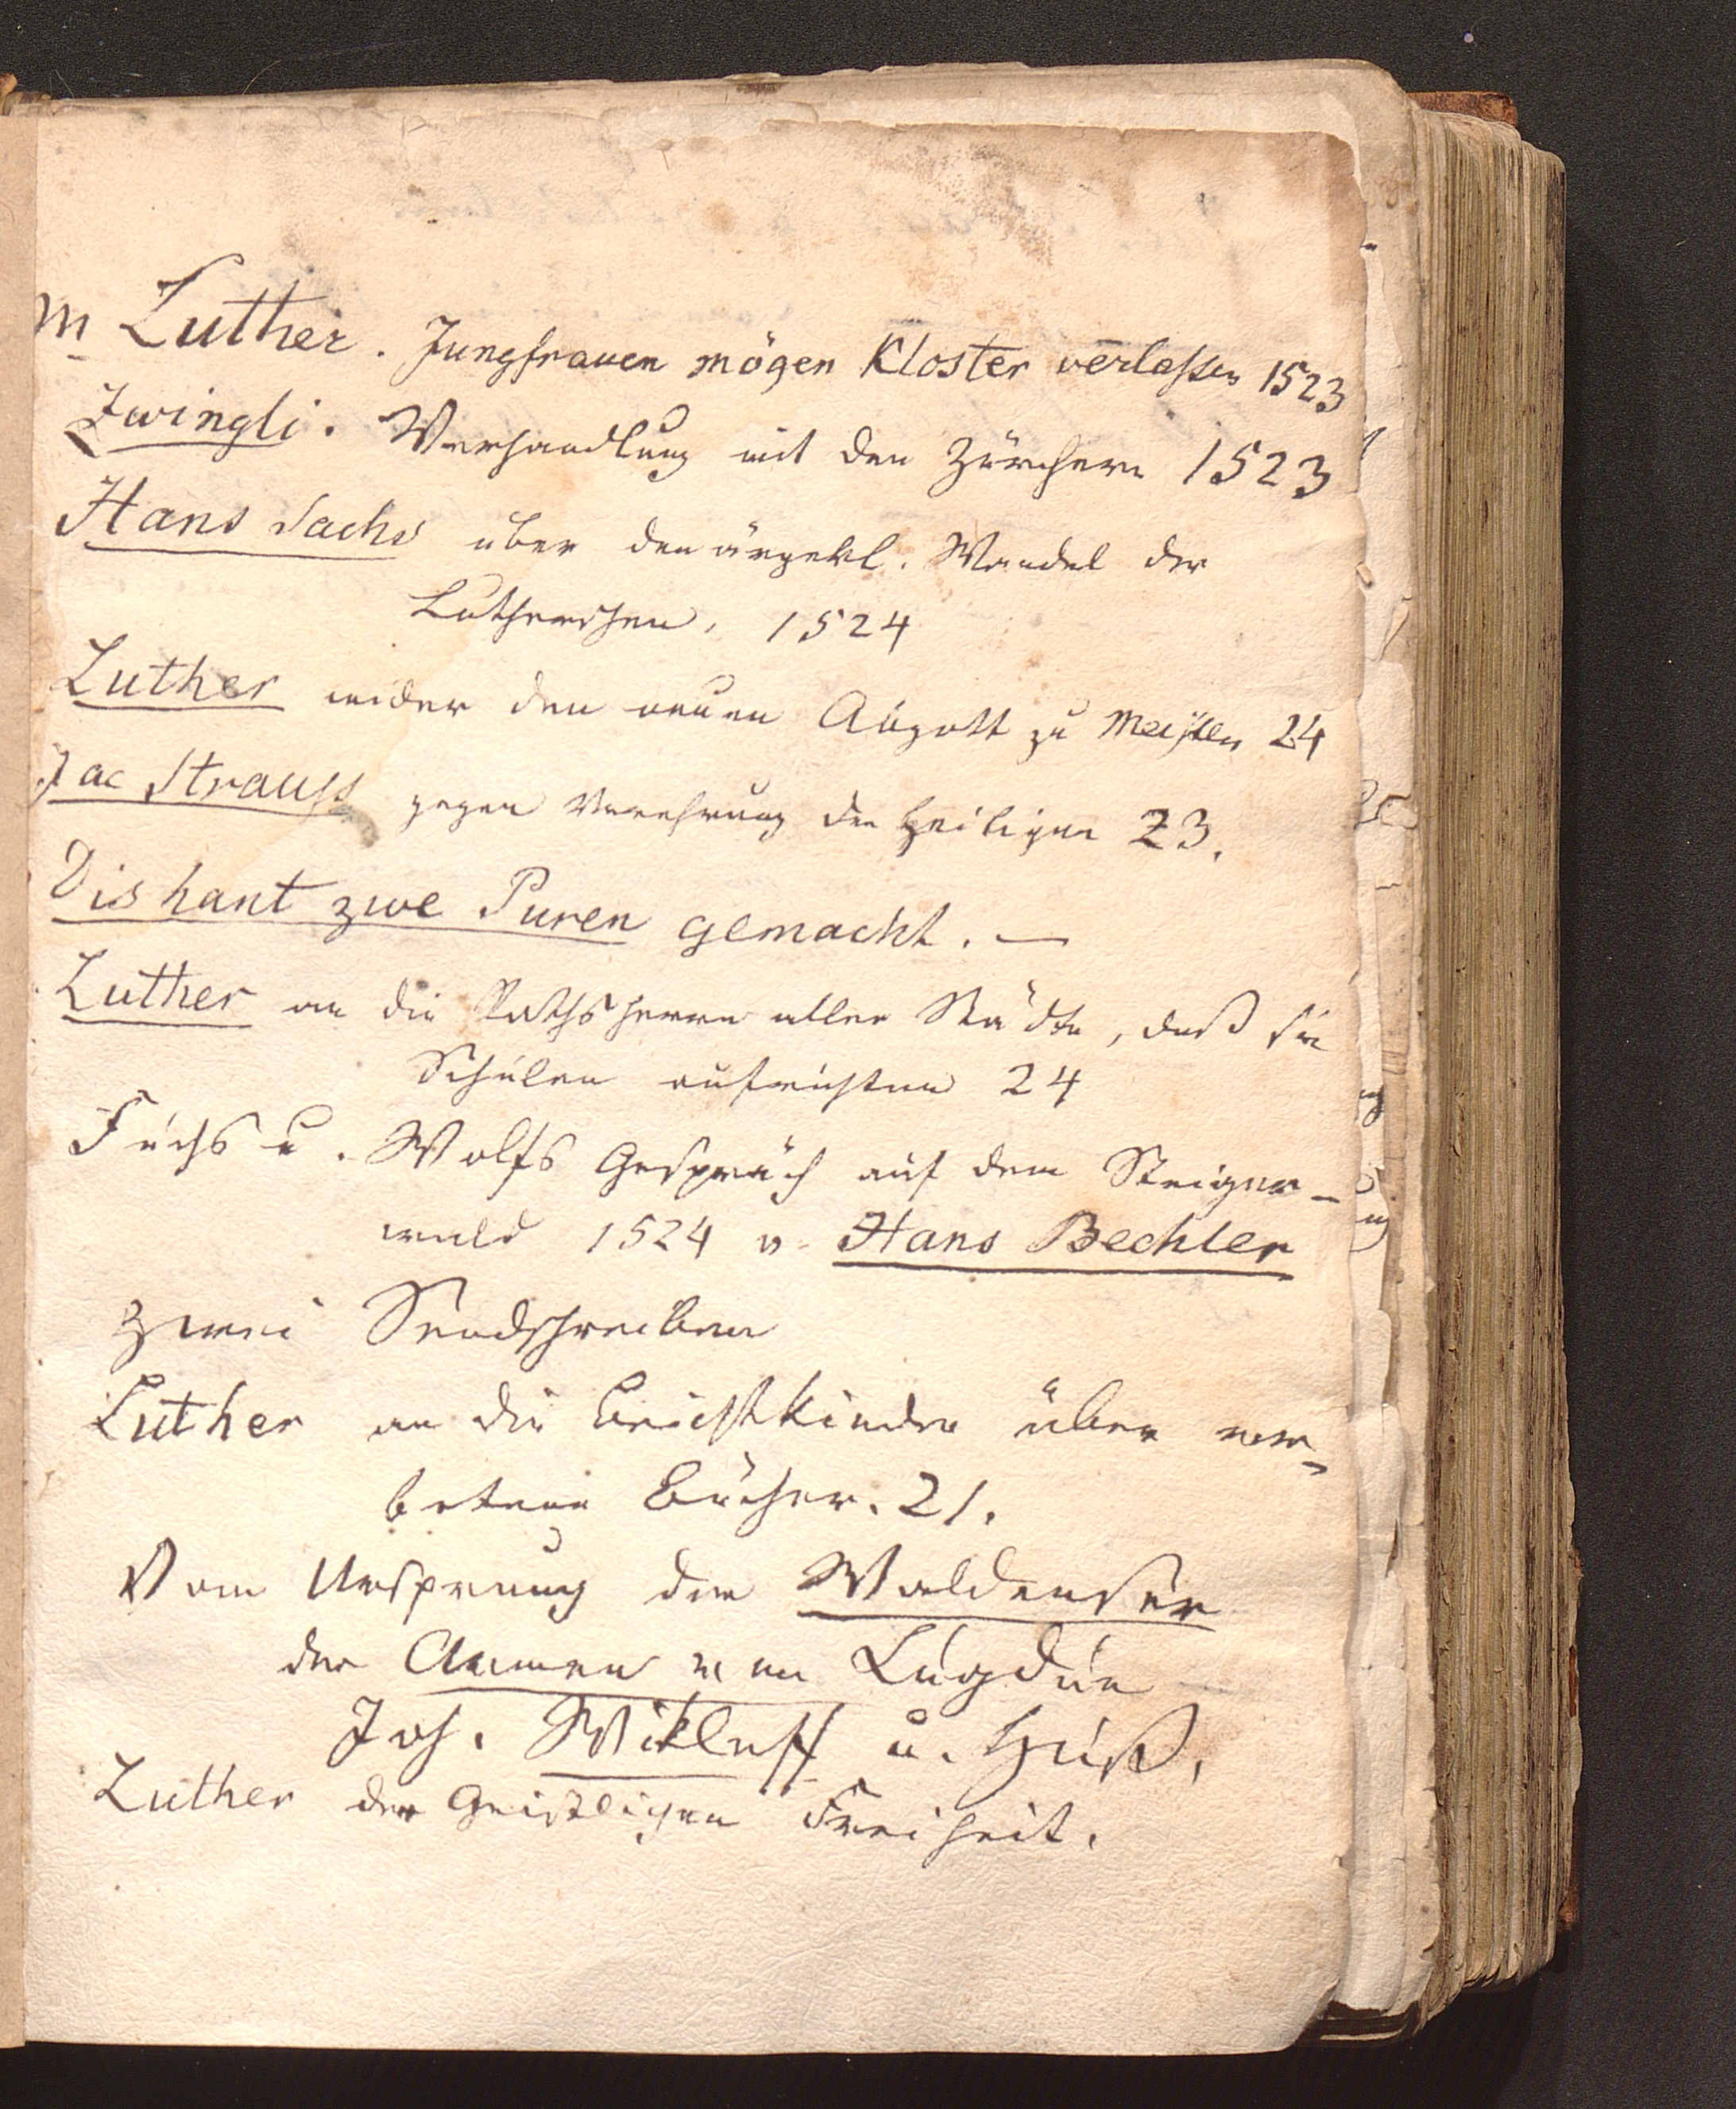 M Luther. Jungfrauen mögen Kloster verlassen 1523
Zwingli. Verhandlung mit den Zürchern 1523
Hans Sachs über den ärgerl. Wandel der
Lutherschen. 1524
Luther wider den neuen Abgott zu Meissen 24
Jac Strauss gegen Verehrung der Heiligen 23.
Dis hant zwe Puren gemacht. —
Luther an die Rathsherrn aller Städte, daß sie
Schulen aufrichten 24
Fuchs u. Wolfs Gespräch auf dem Steiger-
wald 1524 v. Hans Bechler
Zwei Sendschreiben
Luther an die Beichtkinder über ver-
botene Bücher. 21.
Vom Ursprung der Waldenser
der Armen von Lugdun
Joh. Wikleff u. Huß.
Luther der Geistlichen Freiheit.